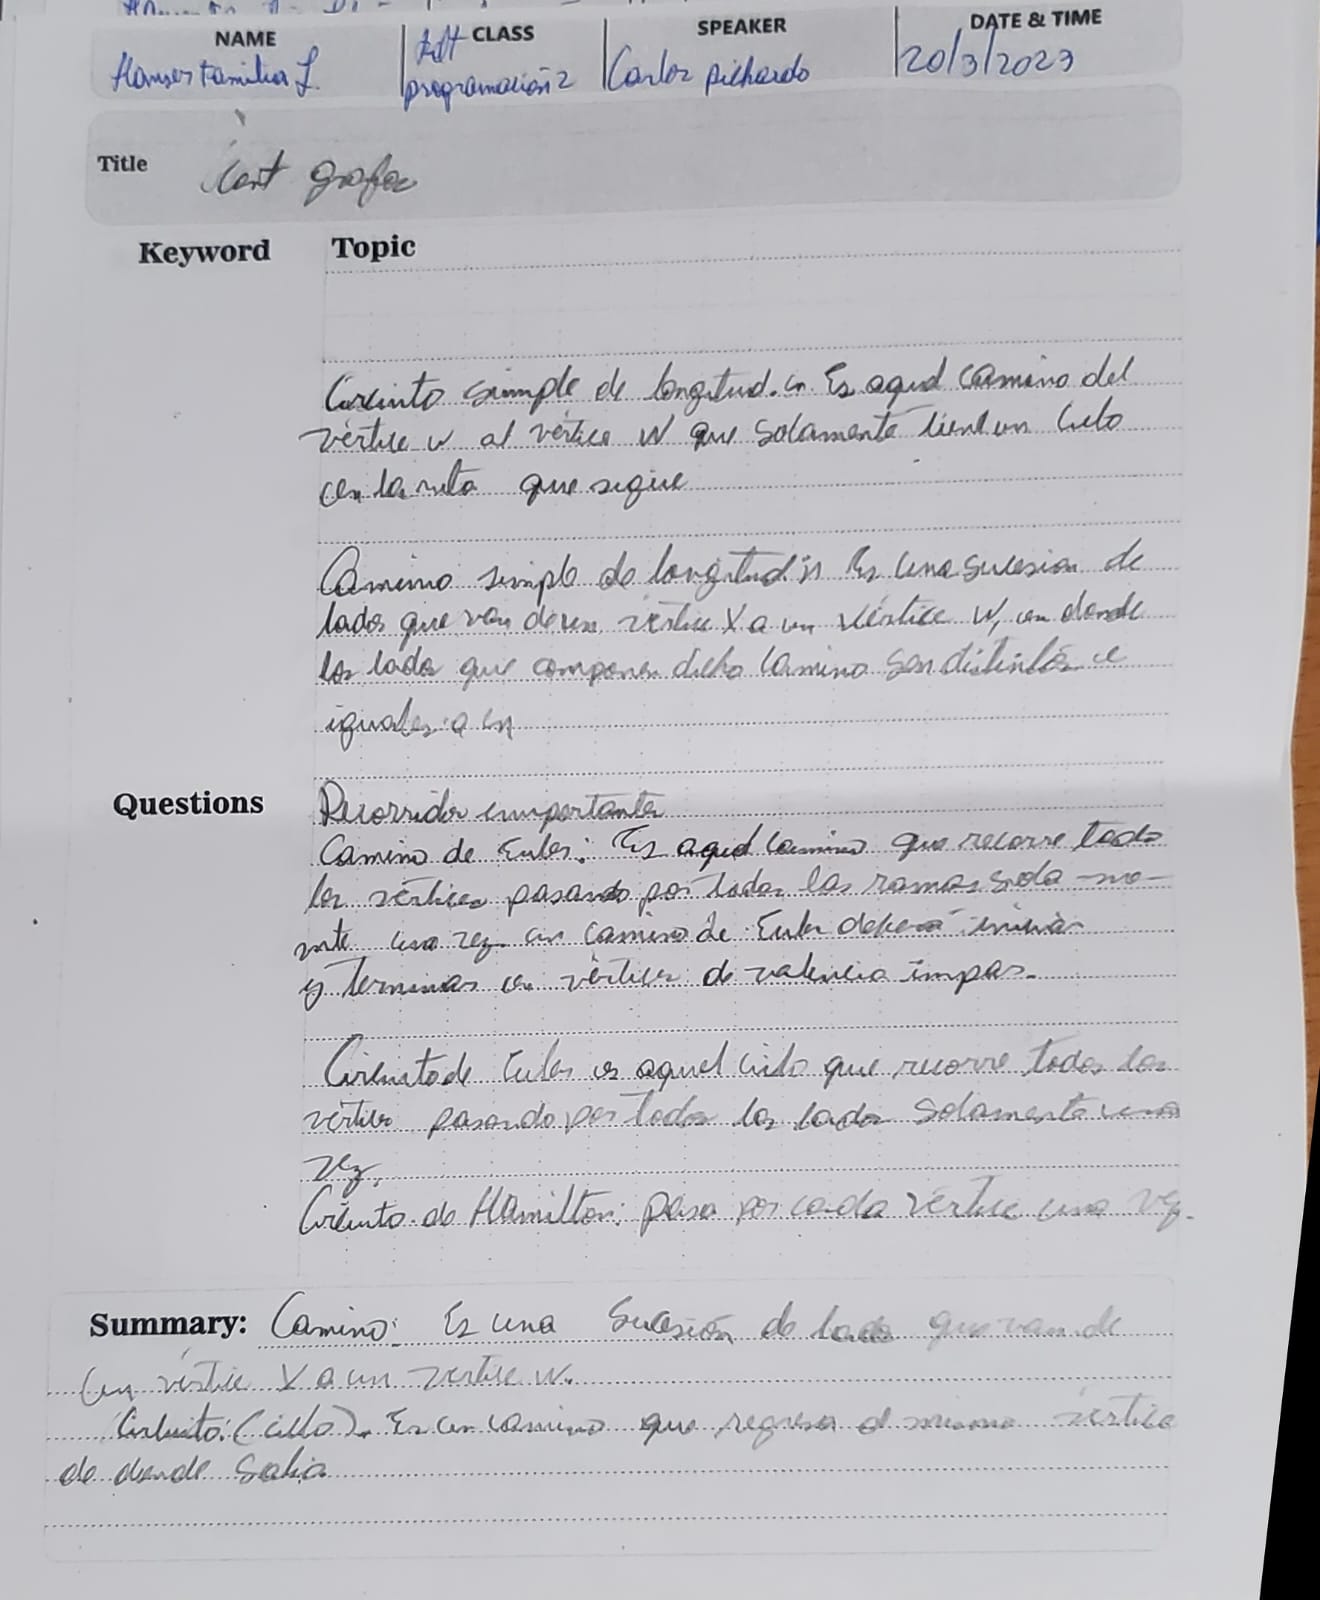 NAME CLASS SPEAKER DATE & TIME
Hanser Familia L. programación 2 Carlos pichardo 20/3/2023
Title grafos
Keyword Topic
Circuito simple de longitud.n Es aquel camino del
vértice w al vértice w que solamente tiene un ciclo
en la ruta que sigue
Camino simple de longitud n Es una sucesion de
lados que van de un vértice X a un vértice W, en donde
los lados que componen dicho camino son distintos e
iguales a n
Questions Recorridos importantes
Camino de Euler: Es aquel camino que recorre todo
los vértices pasando por todas las ramas sola-me-
nte una vez un camino de Euler deberá iniciar
y terminar en vértices de valencia impar.
Circuito de Euler es aquel ciclo que recorre todos los
vértices pasando por todos los lados solamente una
vez.
Circuito de Hamilton: pasa por cada vértice una vez.
Summary: Camino: Es una Sucesión de lados que van de
un vértice X a un vertice w.
Circuito: (ciclo). Es un camino que regresa al mismo vértice
de donde Salio